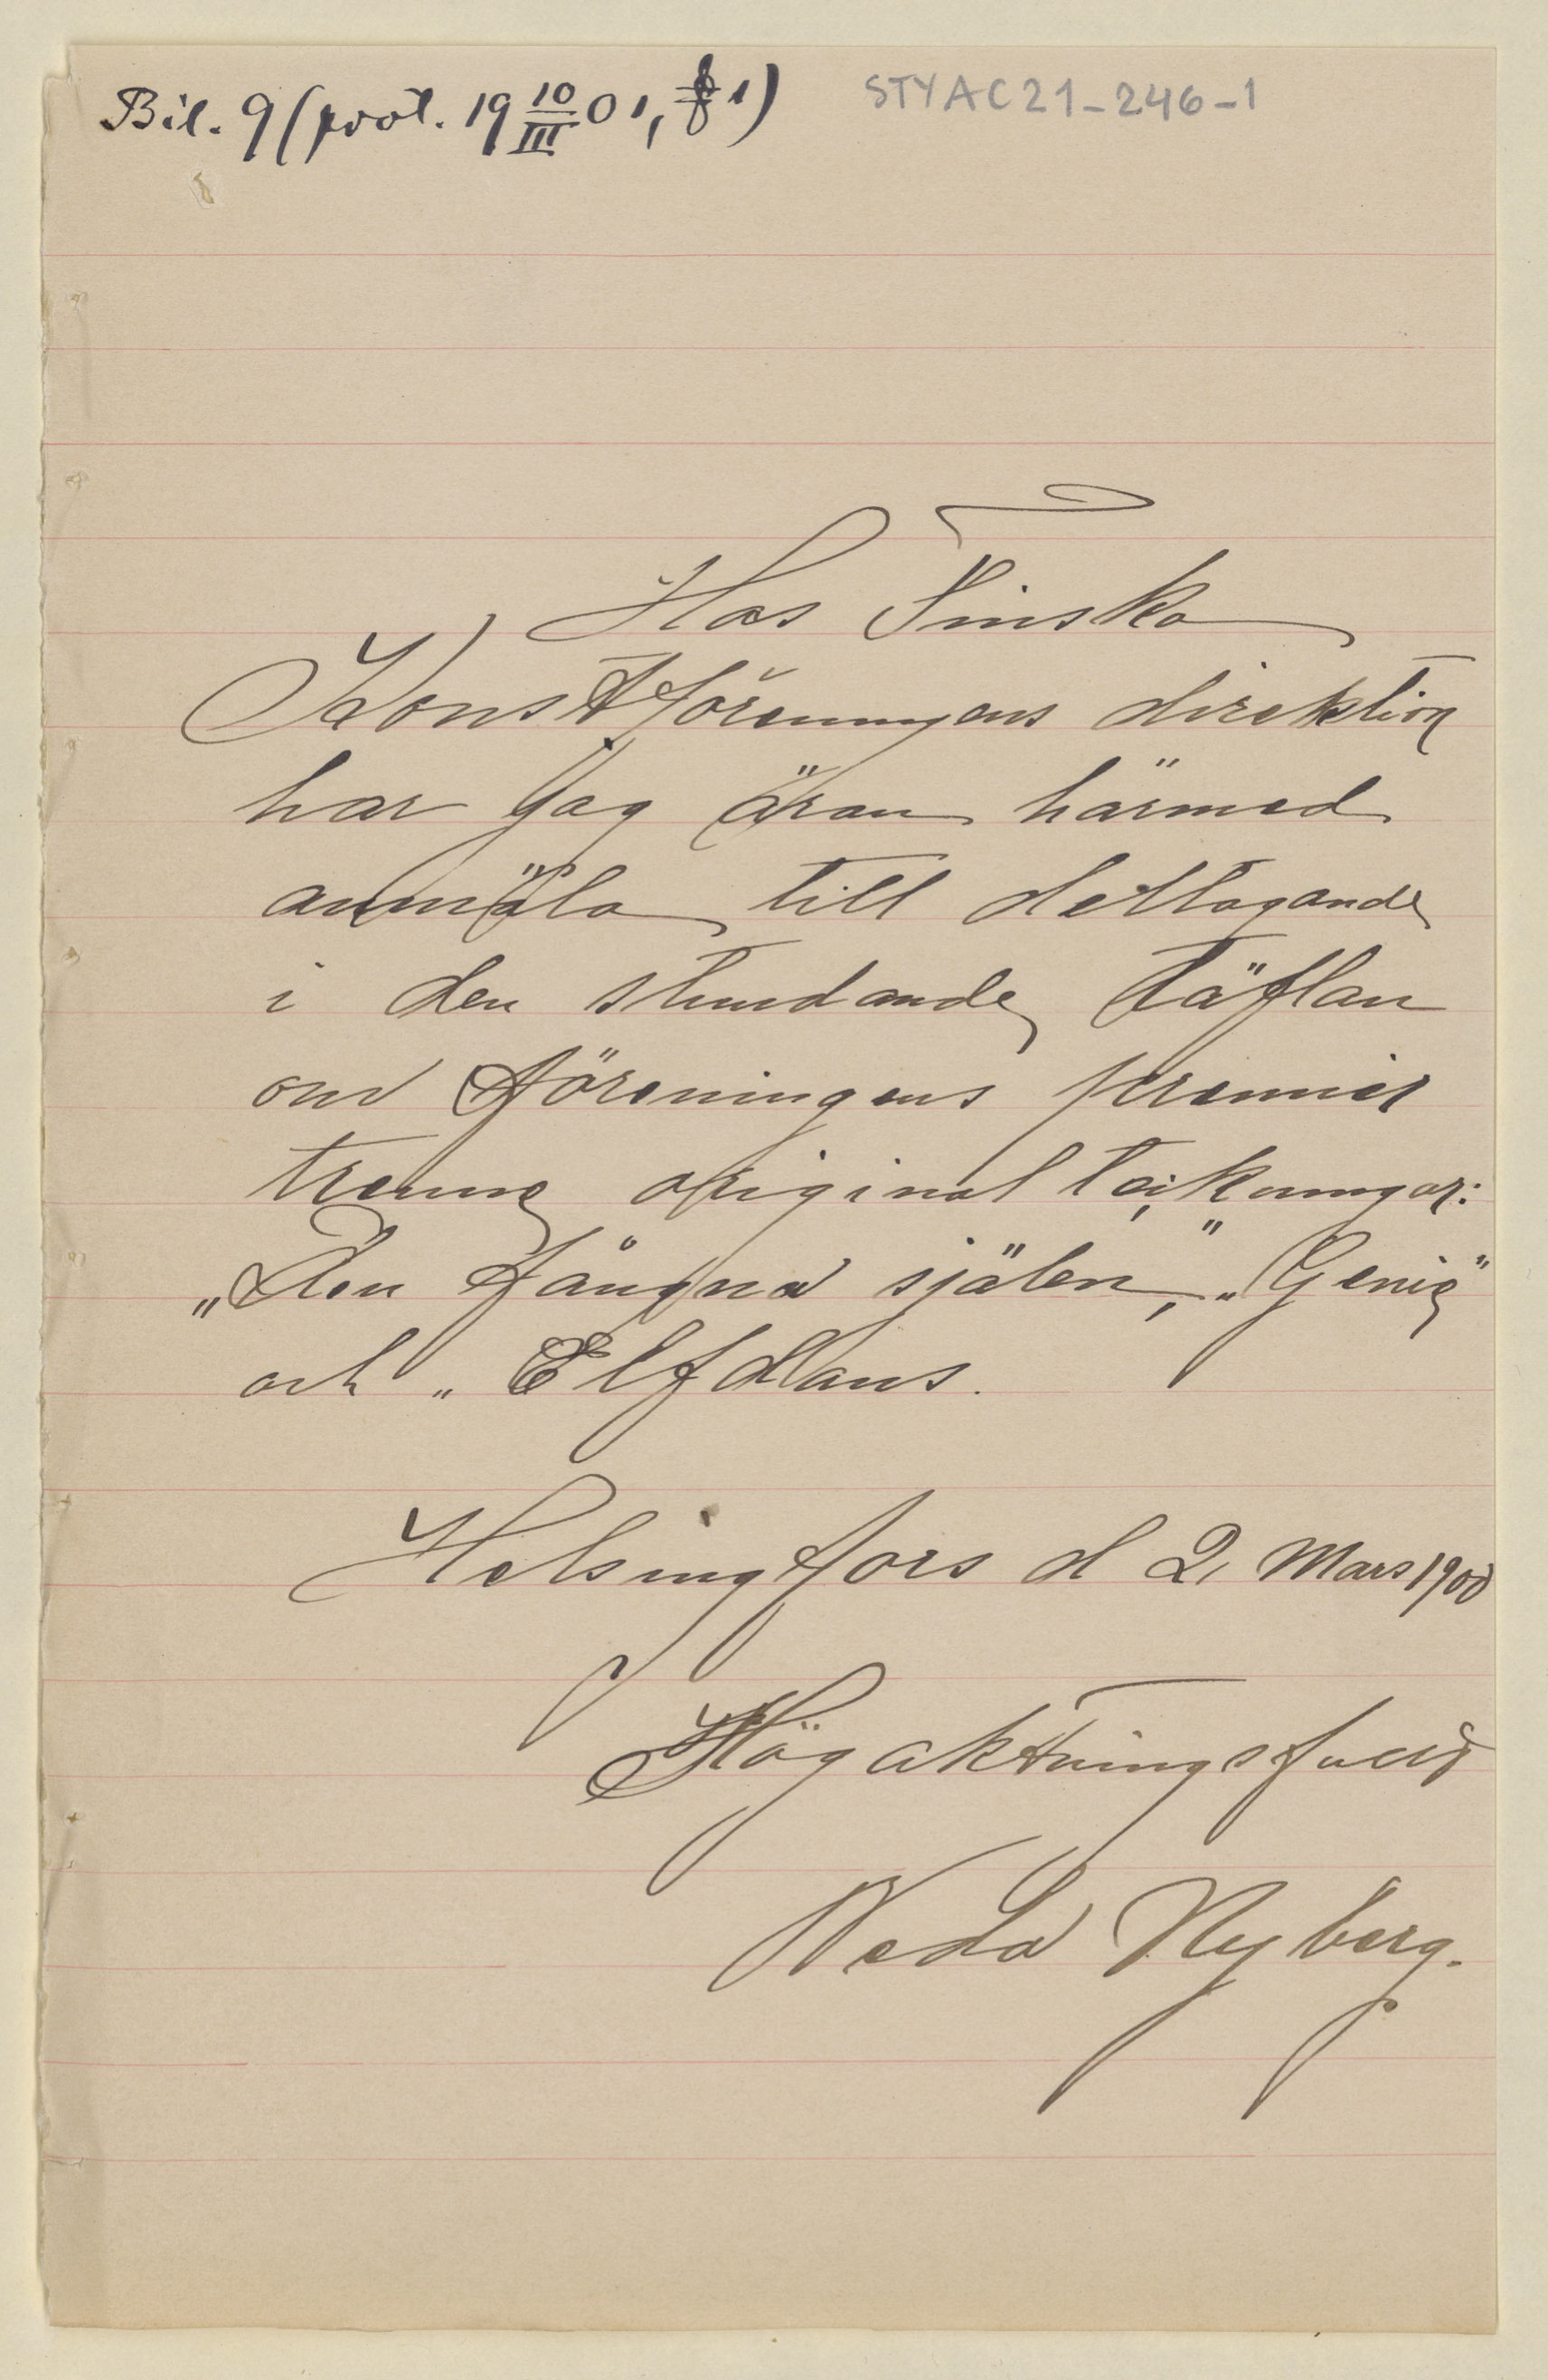 Bil. 9 (prot. 19 10/III 01, § 1)
STYAC21-246-1
Hos Finska
Konstföreningens direktion
har jag äran härmed
anmäla till deltagande
i den stundande täflan
om föreningens premier
trenne original teikningar:
„Den fångna själen", „Genie"
och „Elfdans.
Helsingfors d 2, Mars 1900
Högaktningsfullt
Weda Nyberg.